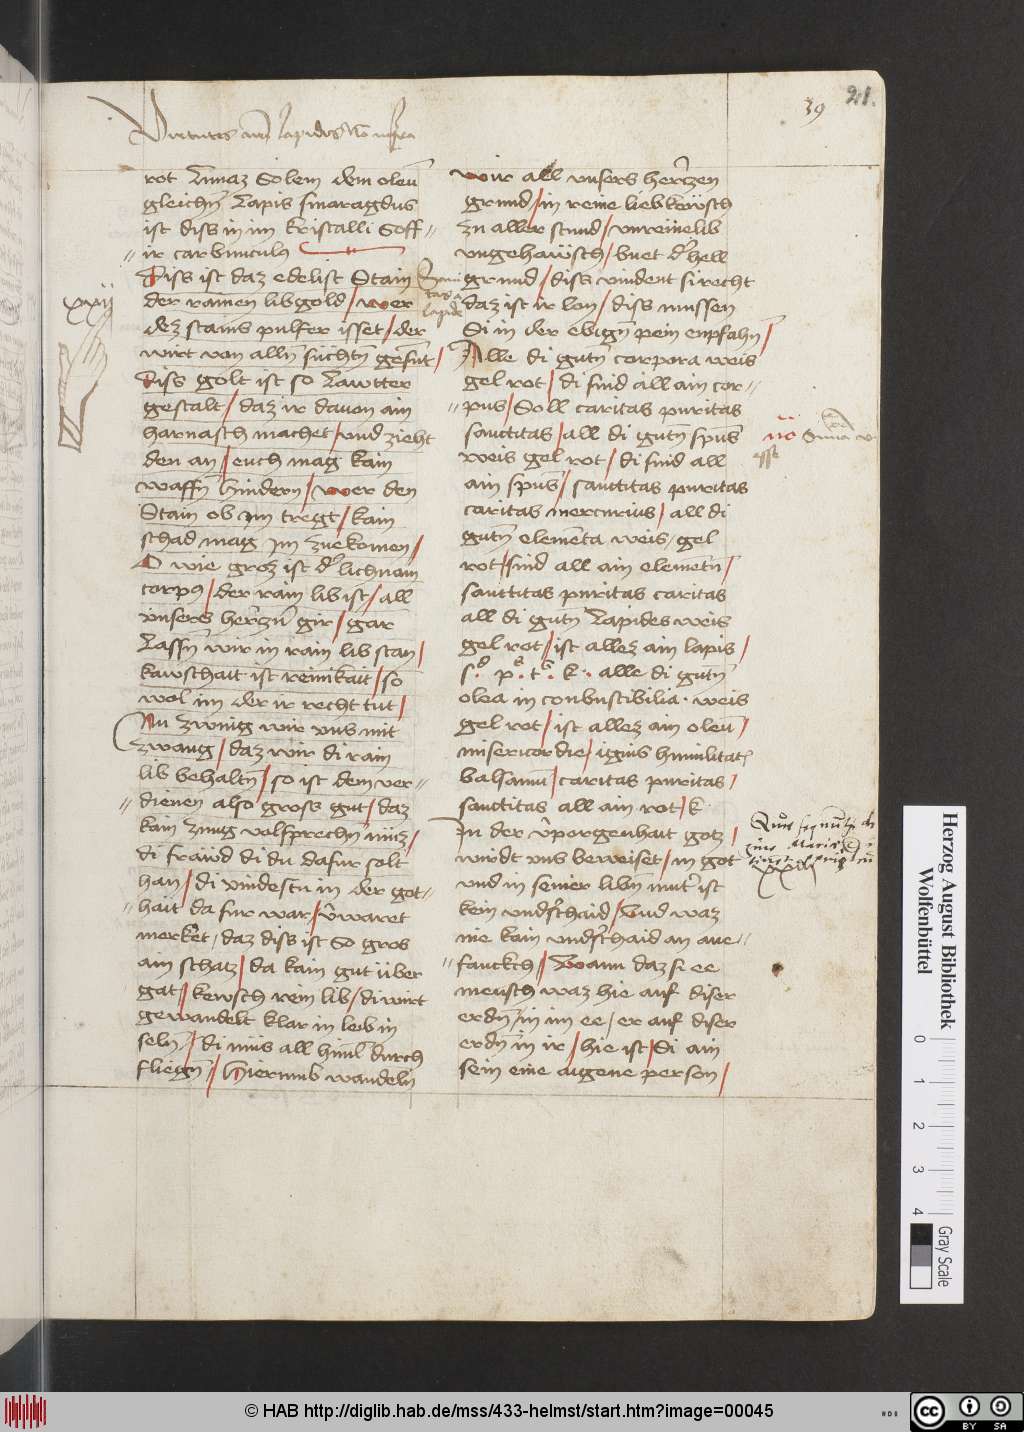 39
21.
Virtutes
rot Lunaz Solem dem oleū
gleichn̄ Lapis smaragdus
ist diss in im kristalli Soff
ir carbunculus
Diss ist daz edelist Stain
der ramen lib gold / wer
dez stains pulfer isset / der
wirt von alln̄ süchtn̄ gesunt /
Diss golt ist so Lawtter
gestalt / daz ir dauon ain
harnasch machet / vnd zieht
den an / euch mag kain
waffn̄ hindern / wer den
Stain ob im tregt / kain
schad mag im zuekomen /
O wie groz ist d' lichnam
corpus / der rain lib ist / all
vnsers herczn̄ gir / gar
Lassn̄ wir in rain lib stan /
kawschait ist reinikait / so
wol im der ir recht tut /
Nu zwing wir vns mit
zwang / daz wir di rain
lib behaltn̄ / so ist dem ver
dienen also gross gut / daz
kain zung volsprechn̄ müg /
di fräwd di du dafur solt
han / di vindestu in der got
hait da fur war / v'waret
merket / daz diss ist So gros
ain schatz / da kain gut über
gat / kewsch rein lib / di wirt
gewandelt klar in leib in
seln̄ / di müs all himl durch
fliegn̄ / Hierumb wandeln
xxij
wir all vnsers herczen
grund / in reine lieb kewsch
zu aller stund / vnreine lib
vngehawsch / buet d' hell
grund / diss vindent si recht
daz ist ir lon / diss mussen
Si in der ebign̄ pein enpfahn̄ /
Alle di gutn̄ corpora weis
gel rot / di sind all ain cor
pus / Soll caritas puritas
sanctitas / all di gutn̄ spūs
weis gel rot / di sind all
ain spūs / sanctitas puritas
caritas mercurius / all di
gutn̄ elementa weis / gel
rot / sind all ain elemetn̄ /
sanctitas puritas caritas
all di gutn̄ Lapides weis
gel rot / ist allez ain lapis /
s. p. t. k. alle di gutn̄
olea in conbustibilia . weis
gel rot / ist allez ain oleū /
misericordie / ignis humilitat
balsamu / caritas puritas /
sanctitas all ain rot / k
In der v'porgenhait gotz /
wirdt vns beweiset / in got
vnd in seiner libn̄ mut' ist
kein vnd'schaid / Vnd waz
nie kain vnd'schaid an ane
fanckch / Wann daz si ee
mensch waz hie auf diser
erdn̄ / in im ee / er auf diser
erdn̄ in ir / hie ist / di ain
sein eine aigene person /
Herzog August Bibliothek
Wolfenbüttel
0
1
2
3
4
Gray Scale
© HAB http://diglib.hab.de/mss/433-helmst/start.htm?image=00045
HDB
cc
BY
SA